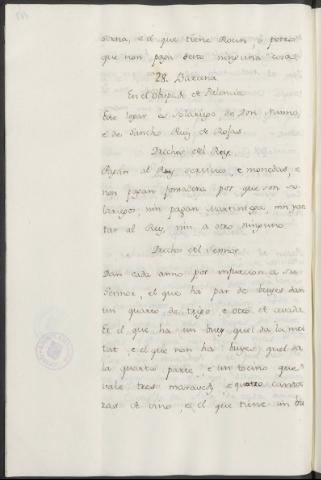 serna, e el que tiene Rocin, o potro
que non paga desto ninguna cosa.
28. Barana
En el Obispado de Palencia
Este logar es Solariego de Don Nunno,
e de Sancho Ruiz de Rojas
Derechos del Rey
Pagan al Rey servicios e monedas, e
non pagan fonsadera por que son so-
lariegos, nin pagan martiniega, nin yan-
tar al Rey, nin a otro ninguno
Derechos del Sennor
Dan cada anno por infurcion a su
Sennor, el que ha par de bueyes dan
un quarto de trigo e otro de cevada
Et el que ha un buey quel da la mei-
tat, e el que non ha bueyes quel da
la quarta parte, e un tocino que
vale tres maraveds. e quatro canta-
ras de vino, e el que tiene un bu